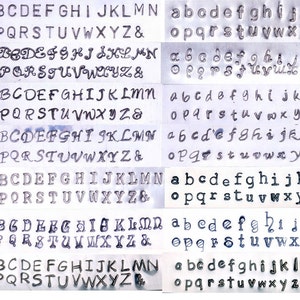 BCDEFGHIJKLMN
PQRSTUVWXYZ&
BCDEFGHIJKLMN
PQRSTUVWXYZ&
BCDEFGHIJKLMN
PQRSTUVWXYZ&
BCDEFGHIJKLMN
PQRSTUVWXYZ&
BCDEFGHIJKLMN
PQRSTUVWXYZ&
BCDEFGHIJKLMN
PQRSTUVWXYZ&
BCDEFGHIJKLMN
PQRSTUVWXYZ&
abcdefghijk
opqrstuvwx
abcdefghijk
opqrstuvwx
abcdefghijk
opqrstuvwx
abcdefghijk
opqrstuvwx
abcdefghijk
opqrstuvwx
abcdefghijk
opqrstuvwx
abcdefghijk
opqrstuvwx